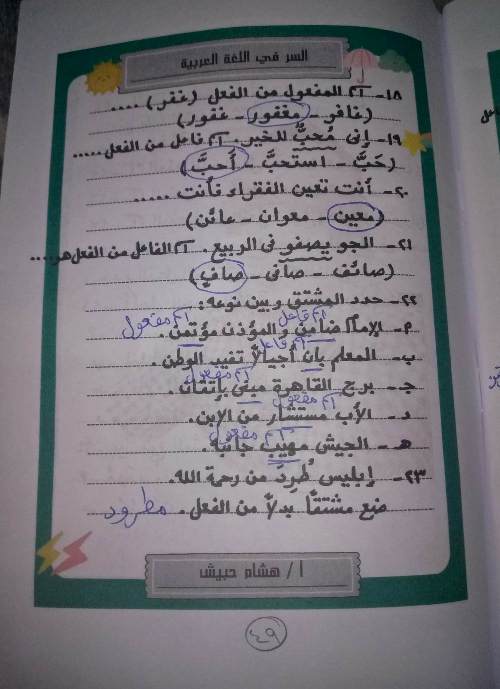 السر في اللغة العربية
١٨- اسم المفعول من الفعل (غفر) ....
(غافر - مغفور - غفور)
١٩- إنى مُحبٌّ للخير. اسم فاعل من الفعل .....
(حَبَّ - استحبَّ - أَحبَّ)
٢٠- أنت تعين الفقراء فأنت .....
(معين - معوان - عائن)
٢١- الجو يصفو فى الربيع. اسم الفاعل من الفعل هو ....
(صائف - صافى - صافٍ)
٢٢- حدد المشتق وبين نوعه:
اسم فاعل اسم مفعول
م- الإمام ضامن والمؤذن مؤتمن.
اسم فاعل
ب- المعلم بانٍ أجيالاً تفيد الوطن.
اسم مفعول
ج- برج القاهرة مبنى بإتقان.
اسم مفعول
د- الأب مستشار من الإبن.
اسم مفعول
هـ- الجيش مهيب جانبه.
٢٣- إبليس طُرِدَ من رحمة الله.
ضع مشتقاً بدلاً من الفعل. مطرود
أ / هشام حبيش
٤٩